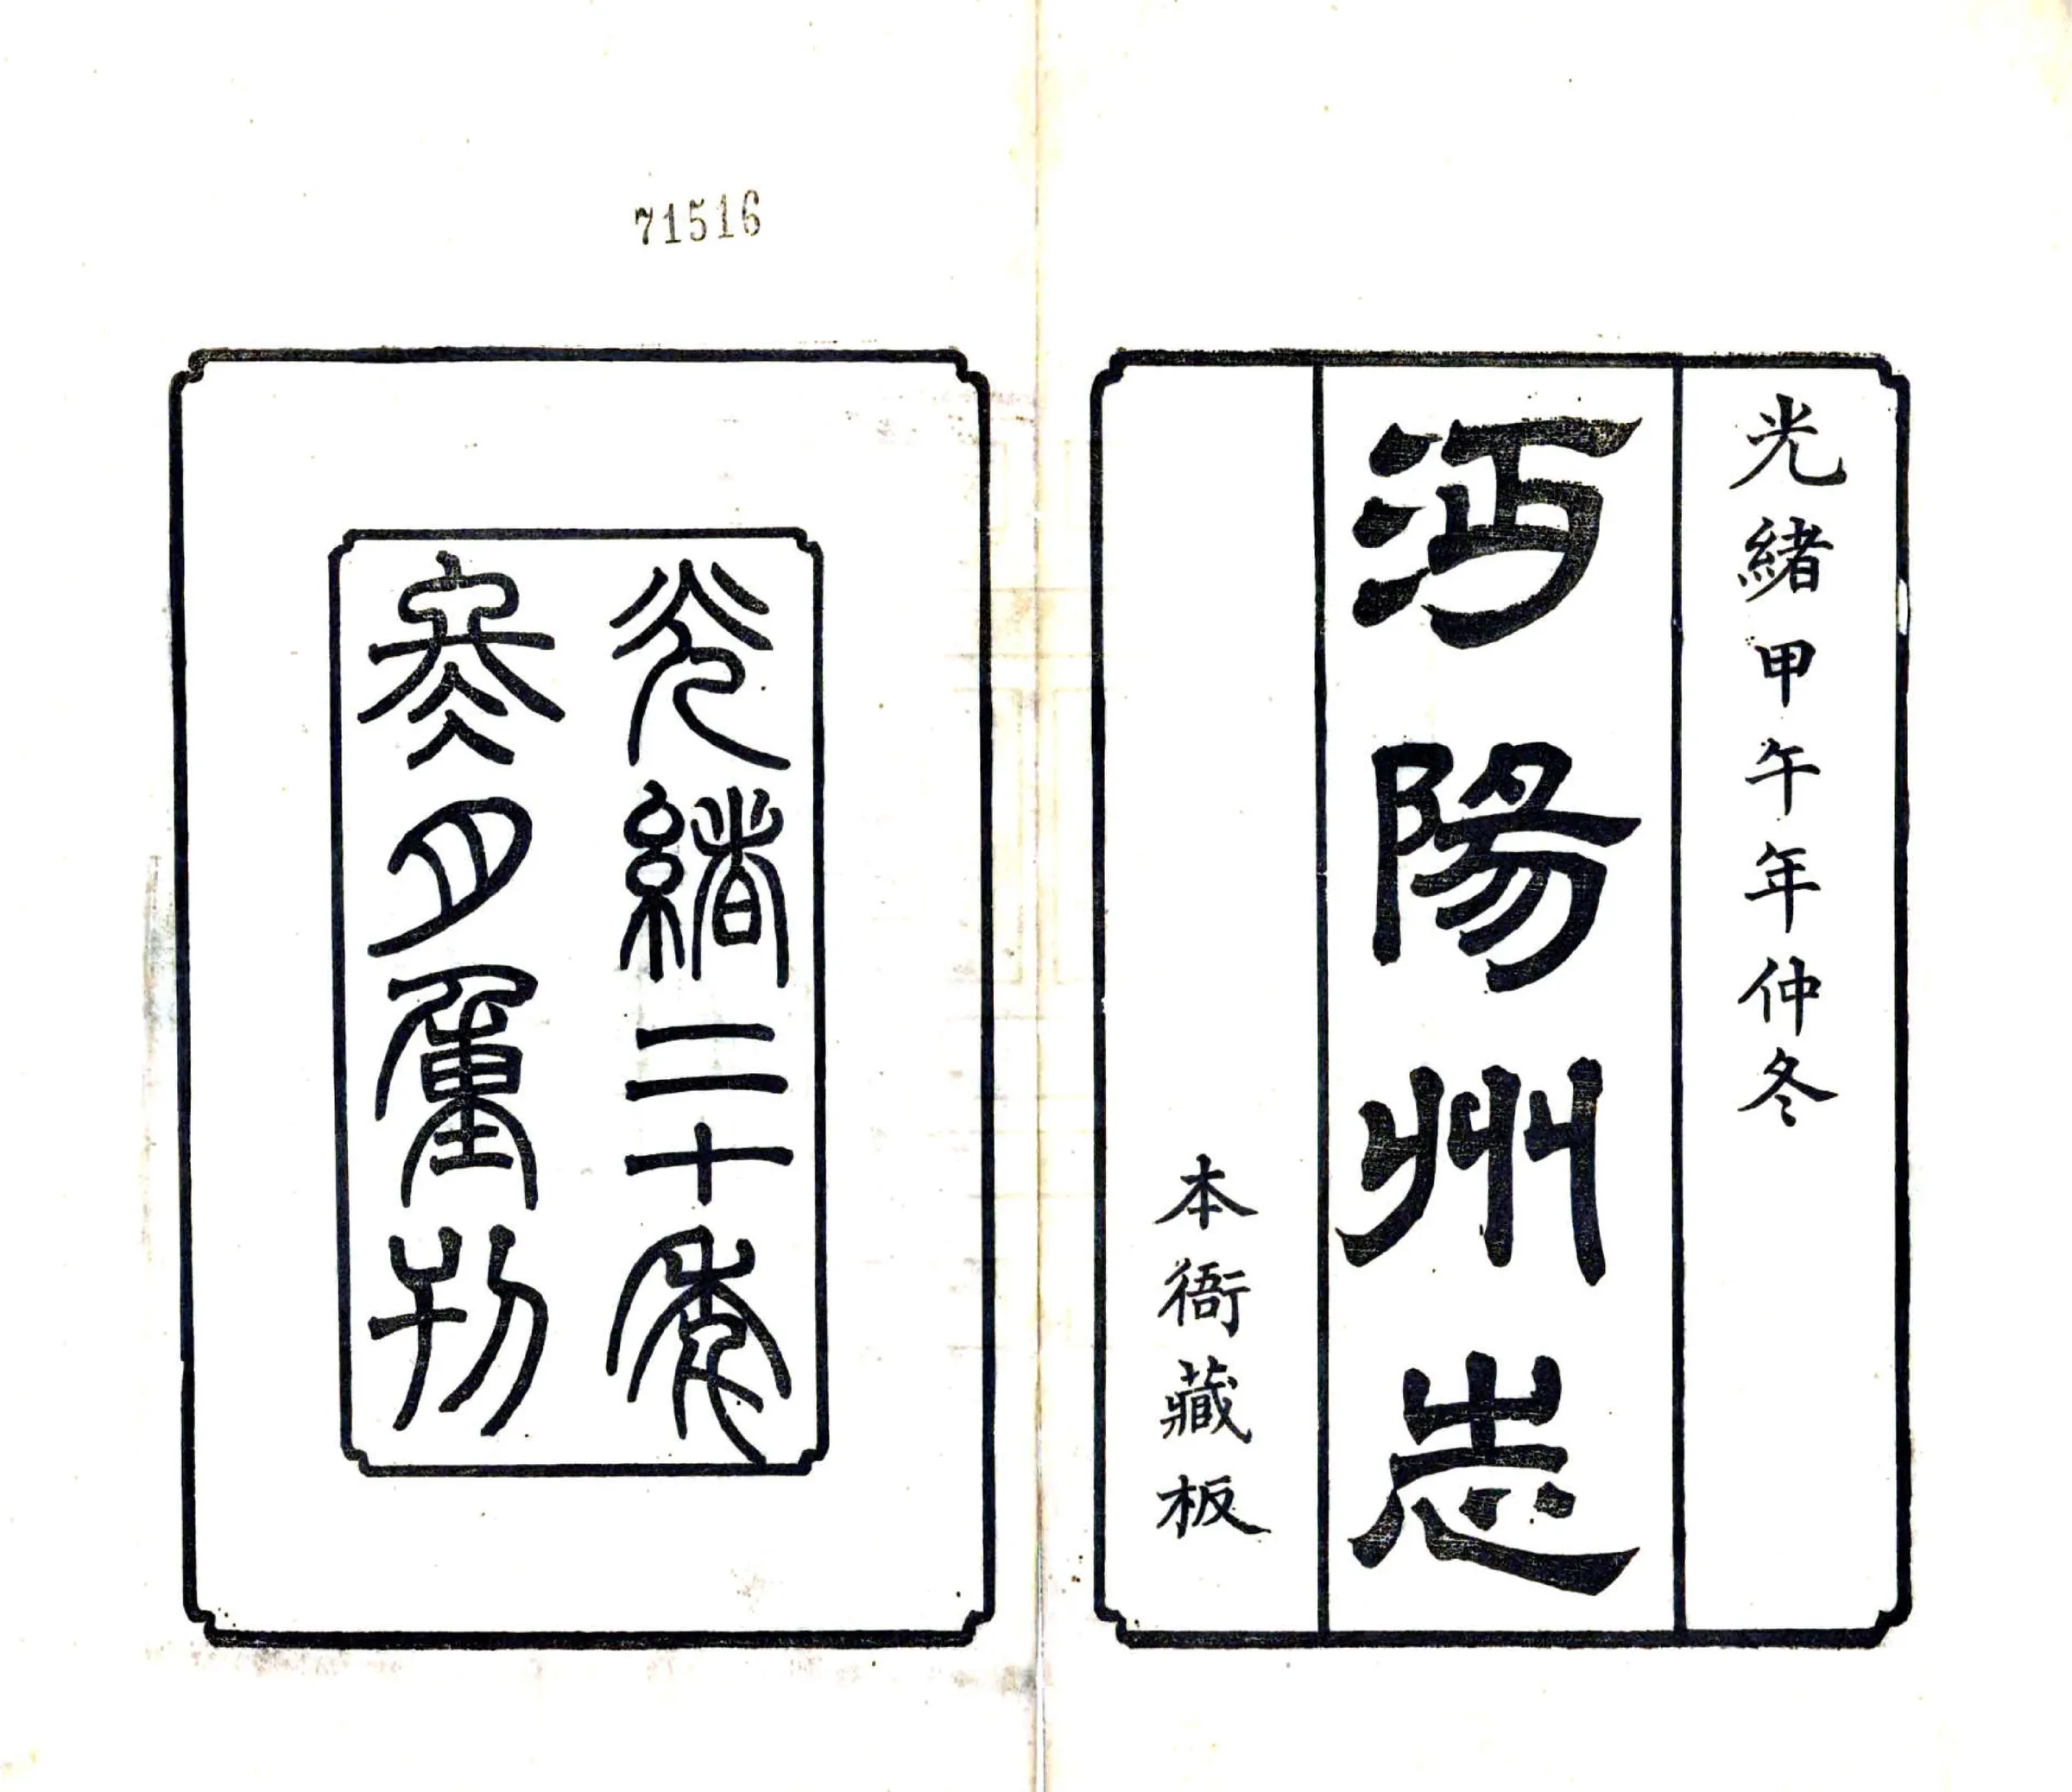 光緒甲午年仲冬
沔陽州志
本衙藏板
71516
光緒二十年
冬月重刊